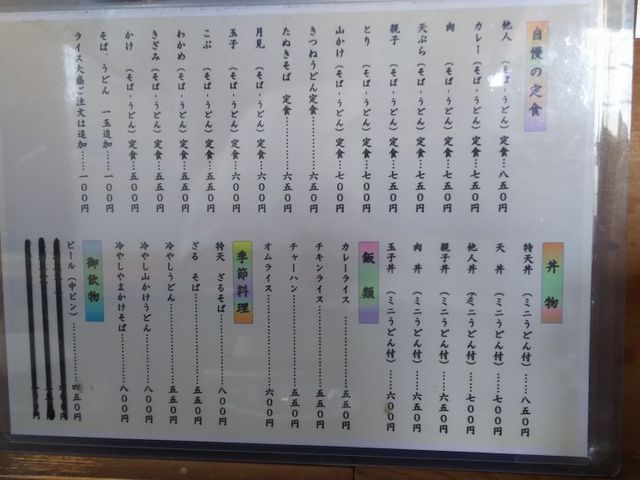 自慢の定食
他人 (そば・うどん) 定食……八五〇円
カレー (そば・うどん) 定食……七五〇円
肉 (そば・うどん) 定食……七五〇円
天ぷら (そば・うどん) 定食……七五〇円
親子 (そば・うどん) 定食……七五〇円
とり (そば・うどん) 定食……七〇〇円
山かけ (そば・うどん) 定食……七〇〇円
きつねうどん定食……六五〇円
たぬきそば 定食……六五〇円
月見 (そば・うどん) 定食……六〇〇円
玉子 (そば・うどん) 定食……六〇〇円
こぶ (そば・うどん) 定食……五五〇円
わかめ (そば・うどん) 定食……五五〇円
きざみ (そば・うどん) 定食……五五〇円
かけ (そば・うどん) 定食……五〇〇円
そば、うどん 一玉追加……一〇〇円
ライス大盛ご注文は追加……一〇〇円
丼物
特天丼 (ミニうどん付)……八五〇円
天丼 (ミニうどん付)……七五〇円
他人丼 (ミニうどん付)……七〇〇円
親子丼 (ミニうどん付)……六五〇円
肉丼 (ミニうどん付)……六五〇円
玉子丼 (ミニうどん付)……六〇〇円
飯類
カレーライス……五五〇円
チキンライス……五五〇円
チャーハン……五五〇円
オムライス……六〇〇円
季節料理
特天 ざるそば……八〇〇円
ざる そば……五五〇円
冷やしうどん……五五〇円
冷やし山かけうどん……八〇〇円
冷やしやまかけそば……八〇〇円
御飲物
ビール (中ビン)……四五〇円